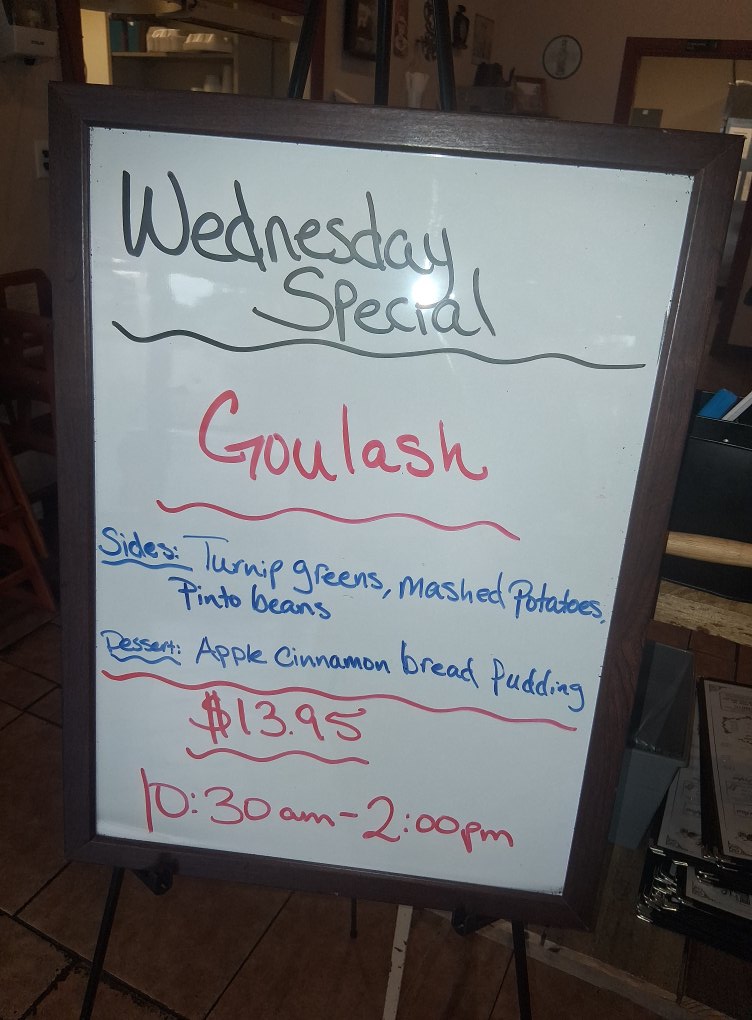 Wednesday
Special
Goulash
Sides: Turnip greens, mashed Potatoes,
Pinto beans
Dessert: Apple Cinnamon bread Pudding
$13.95
10:30am-2:00pm